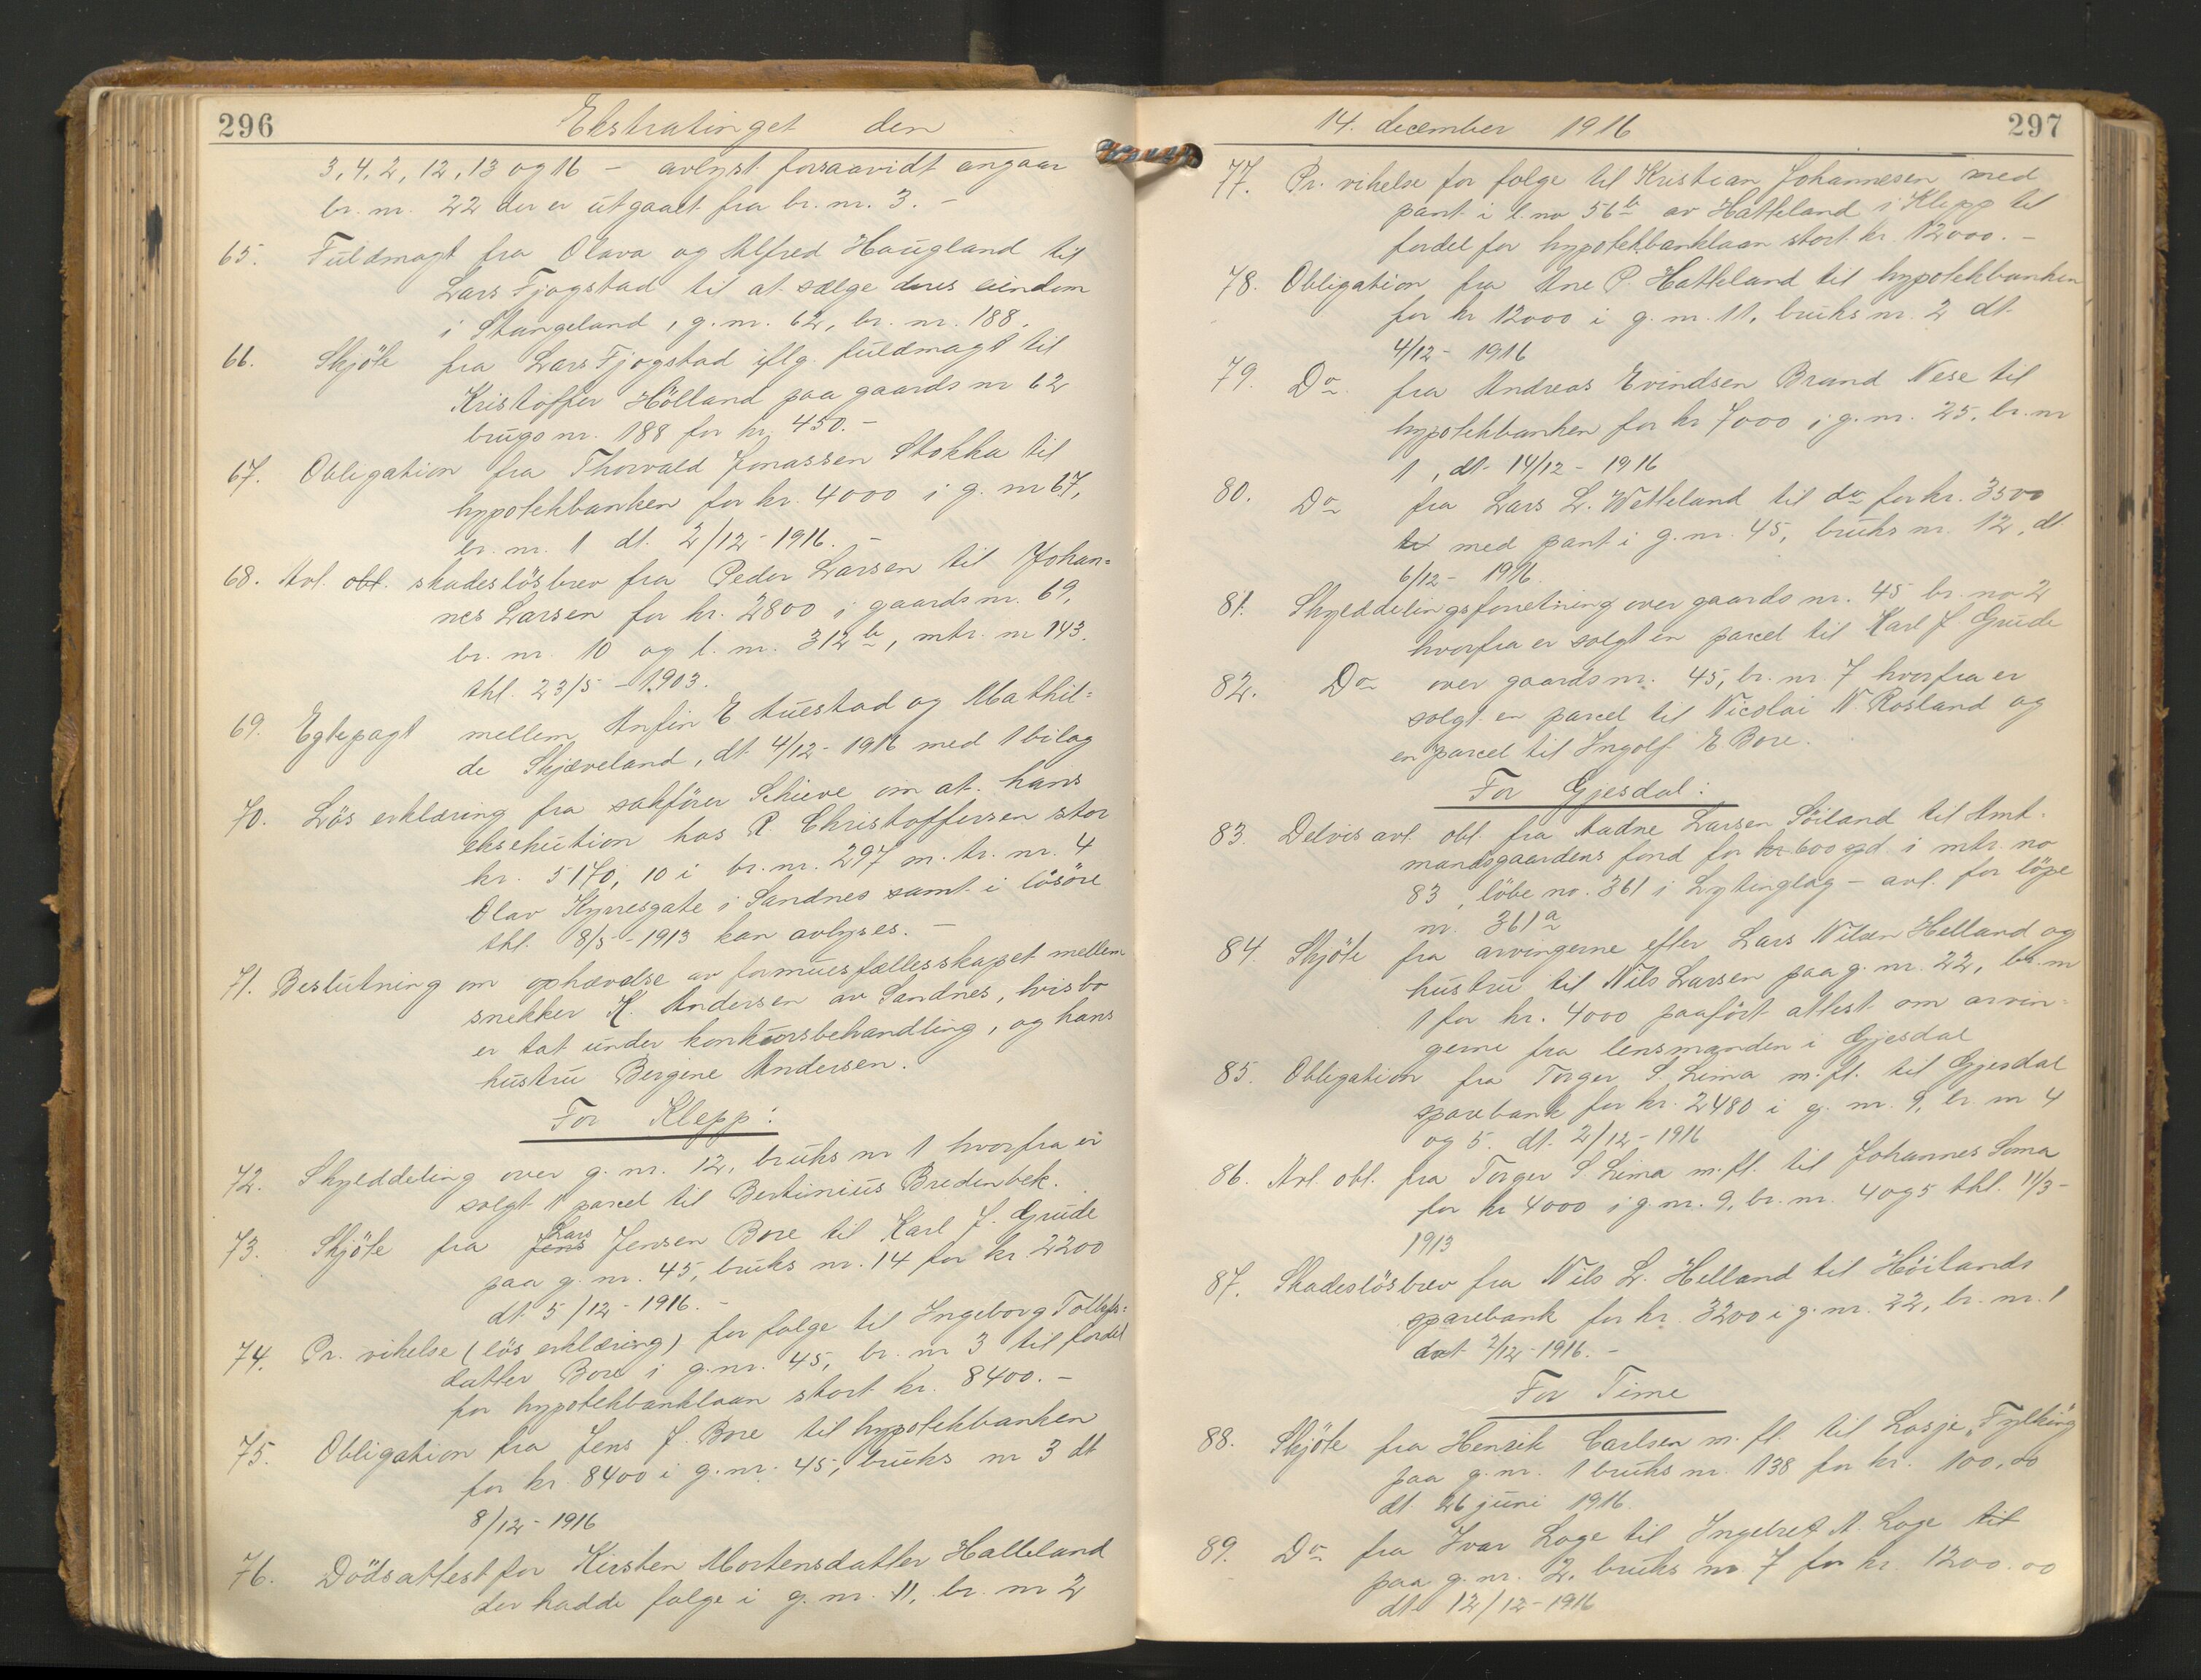 296
Ekstratinget den
3, 4, 2, 12, 13 og 16 - avlyst forsaavidt angaar
br. nr. 22 der er utgaaet fra br. nr. 3. -
65. Fuldmagt fra Olava og Alfred Haugland til
Lars Fjogstad til at sælge deres eiendom
i Stangeland, g. nr. 62, br. nr. 188.
66. Skjöte fra Lars Fjogstad iflg. fuldmagt til
Kristoffer Hölland paa gaards nr 62
brugs nr. 188 for kr. 450.-
67. Obligation fra Thorvald Jonassen Stokka til
hypotekbanken for kr. 4000 i g. nr 67,
br. nr. 1 dt. 2/12 - 1916. -
68. Avl. obl. skadeslösbrev fra Peder Larsen til Johan=
nes Larsen for kr. 2800 i gaards nr. 69,
br. nr. 10 og l. nr. 312 b, mtr. nr 143.
thl. 23/5 - 1903.
69. Egtepagt mellem Anfin E Auestad og Mathil=
de Skjæveland, dt. 4/12 - 1916 med 1 bilag
70. Lös erklæring fra sakförer Schieve om at hans
eksekution hos R. Christoffersen stor
kr. 5170,10 i br. nr. 297 m. tr. nr. 4
Olav Kyrresgate i Sandnes samt i lösöre
thl. 8/5 - 1913 kan avlyses. -
71. Beslutning om ophævelse av formuesfællesskapet mellem
snekker K. Andersen av Sandnes, hvis bo
er tat under konkursbehandling, og hans
hustru Bergine Andersen.
For Klepp:
72. Skylddeling over g. nr. 12, bruks nr 1 hvorfra er
solgt 1 parcel til Bertinius Bredenbek.
73. Skjöte fra Jens Lars Jensen Bore til Karl J. Grude
paa g. nr. 45, bruks nr. 14 for kr 2200
dt 5/12 - 1916. -
74. Pr. vikelse (lös erklæring) for folge til Ingeborg Tollefs=
datter Bore i g. nr. 45, br. nr 3 til fordel
for hypotekbanklaan stort kr. 8400.-
75. Obligation fra Jens J. Bore til hypotekbanken
for kr. 8400 i g. nr. 45, bruks nr 3 dt
8/12 - 1916
76. Dödsattest for Kirsten Mortensdatter Hatteland
der hadde folge i g. nr. 11, br. nr 2
14. december 1916
297
77. Pr. vikelse for folge til Kristian Johannesen med
pant i l. no 56 b av Hatteland i Klepp til
fordel for hypotekbanklaan stort kr. 12000.-
78. Obligation fra Ane P. Hatteland til hypotekbanken
for kr 12000 i g. nr. 11, bruks nr. 2 dt.
4/12 - 1916
79. Do fra Andreas Evindsen Brand Nese til
hypotekbanken for kr 7000 i g. nr. 25, br. nr
1, dt. 14/12 - 1916
80. Do fra Lars L. Wetteland til do for kr. 3500
til med pant i g. nr. 45, bruks nr. 12, dt.
6/12 - 1916.
81. Skylddelingsforretning over gaards nr. 45 br. no 2
hvorfra er solgt en parcel til Karl J Grude
82. Do over gaards nr. 45, br. nr 7 hvorfra er
solgt en parcel til Nicolai N. Rosland og
en parcel til Ingolf E Bore.
For Gjesdal:
83. Delvis avl. obl. fra Aadne Larsen Söiland til Amt-
mandsgaardens fond for kr 600 spd. i mtr. no
83, löbe no. 361 i Lytinglag - avl. for löpe
nr. 361 a
84. Skjöte fra arvingerne efter Lars Nilsen Helland og
hustru til Nils Larsen paa g. nr. 22, br. nr
1 for kr. 4000 paafört attest om arvin=
gerne fra lensmanden i Gjesdal
85. Obligation fra Torger S. Lima m. fl. til Gjesdal
sparebank for kr. 2480 i g. nr. 9, br. nr 4
og 5. dt. 2/12 - 1916
86. Avl. obl. fra Torger S Lima m. fl. til Johannes Soma
for kr 4000 i g. nr. 9, br. nr. 4 og 5 thl. 11/3 -
1913
87. Skadeslösbrev fra Nils L. Helland til Höilands
sparebank for kr. 3200 i g. nr. 22, br. nr. 1
dat 2/12 - 1916. -
For Time
88. Skjöte fra Henrik Carlsen m. fl. til Losje „Fylking"
paa g. nr. 1 bruks nr. 138 for kr. 100,00
dt. 26 juni 1916.
89. Do fra Ivar Loge til Ingebret A. Loge til
paa g. nr. 2, bruks nr 7 for kr 1200.00
dt. 12/12 - 1916